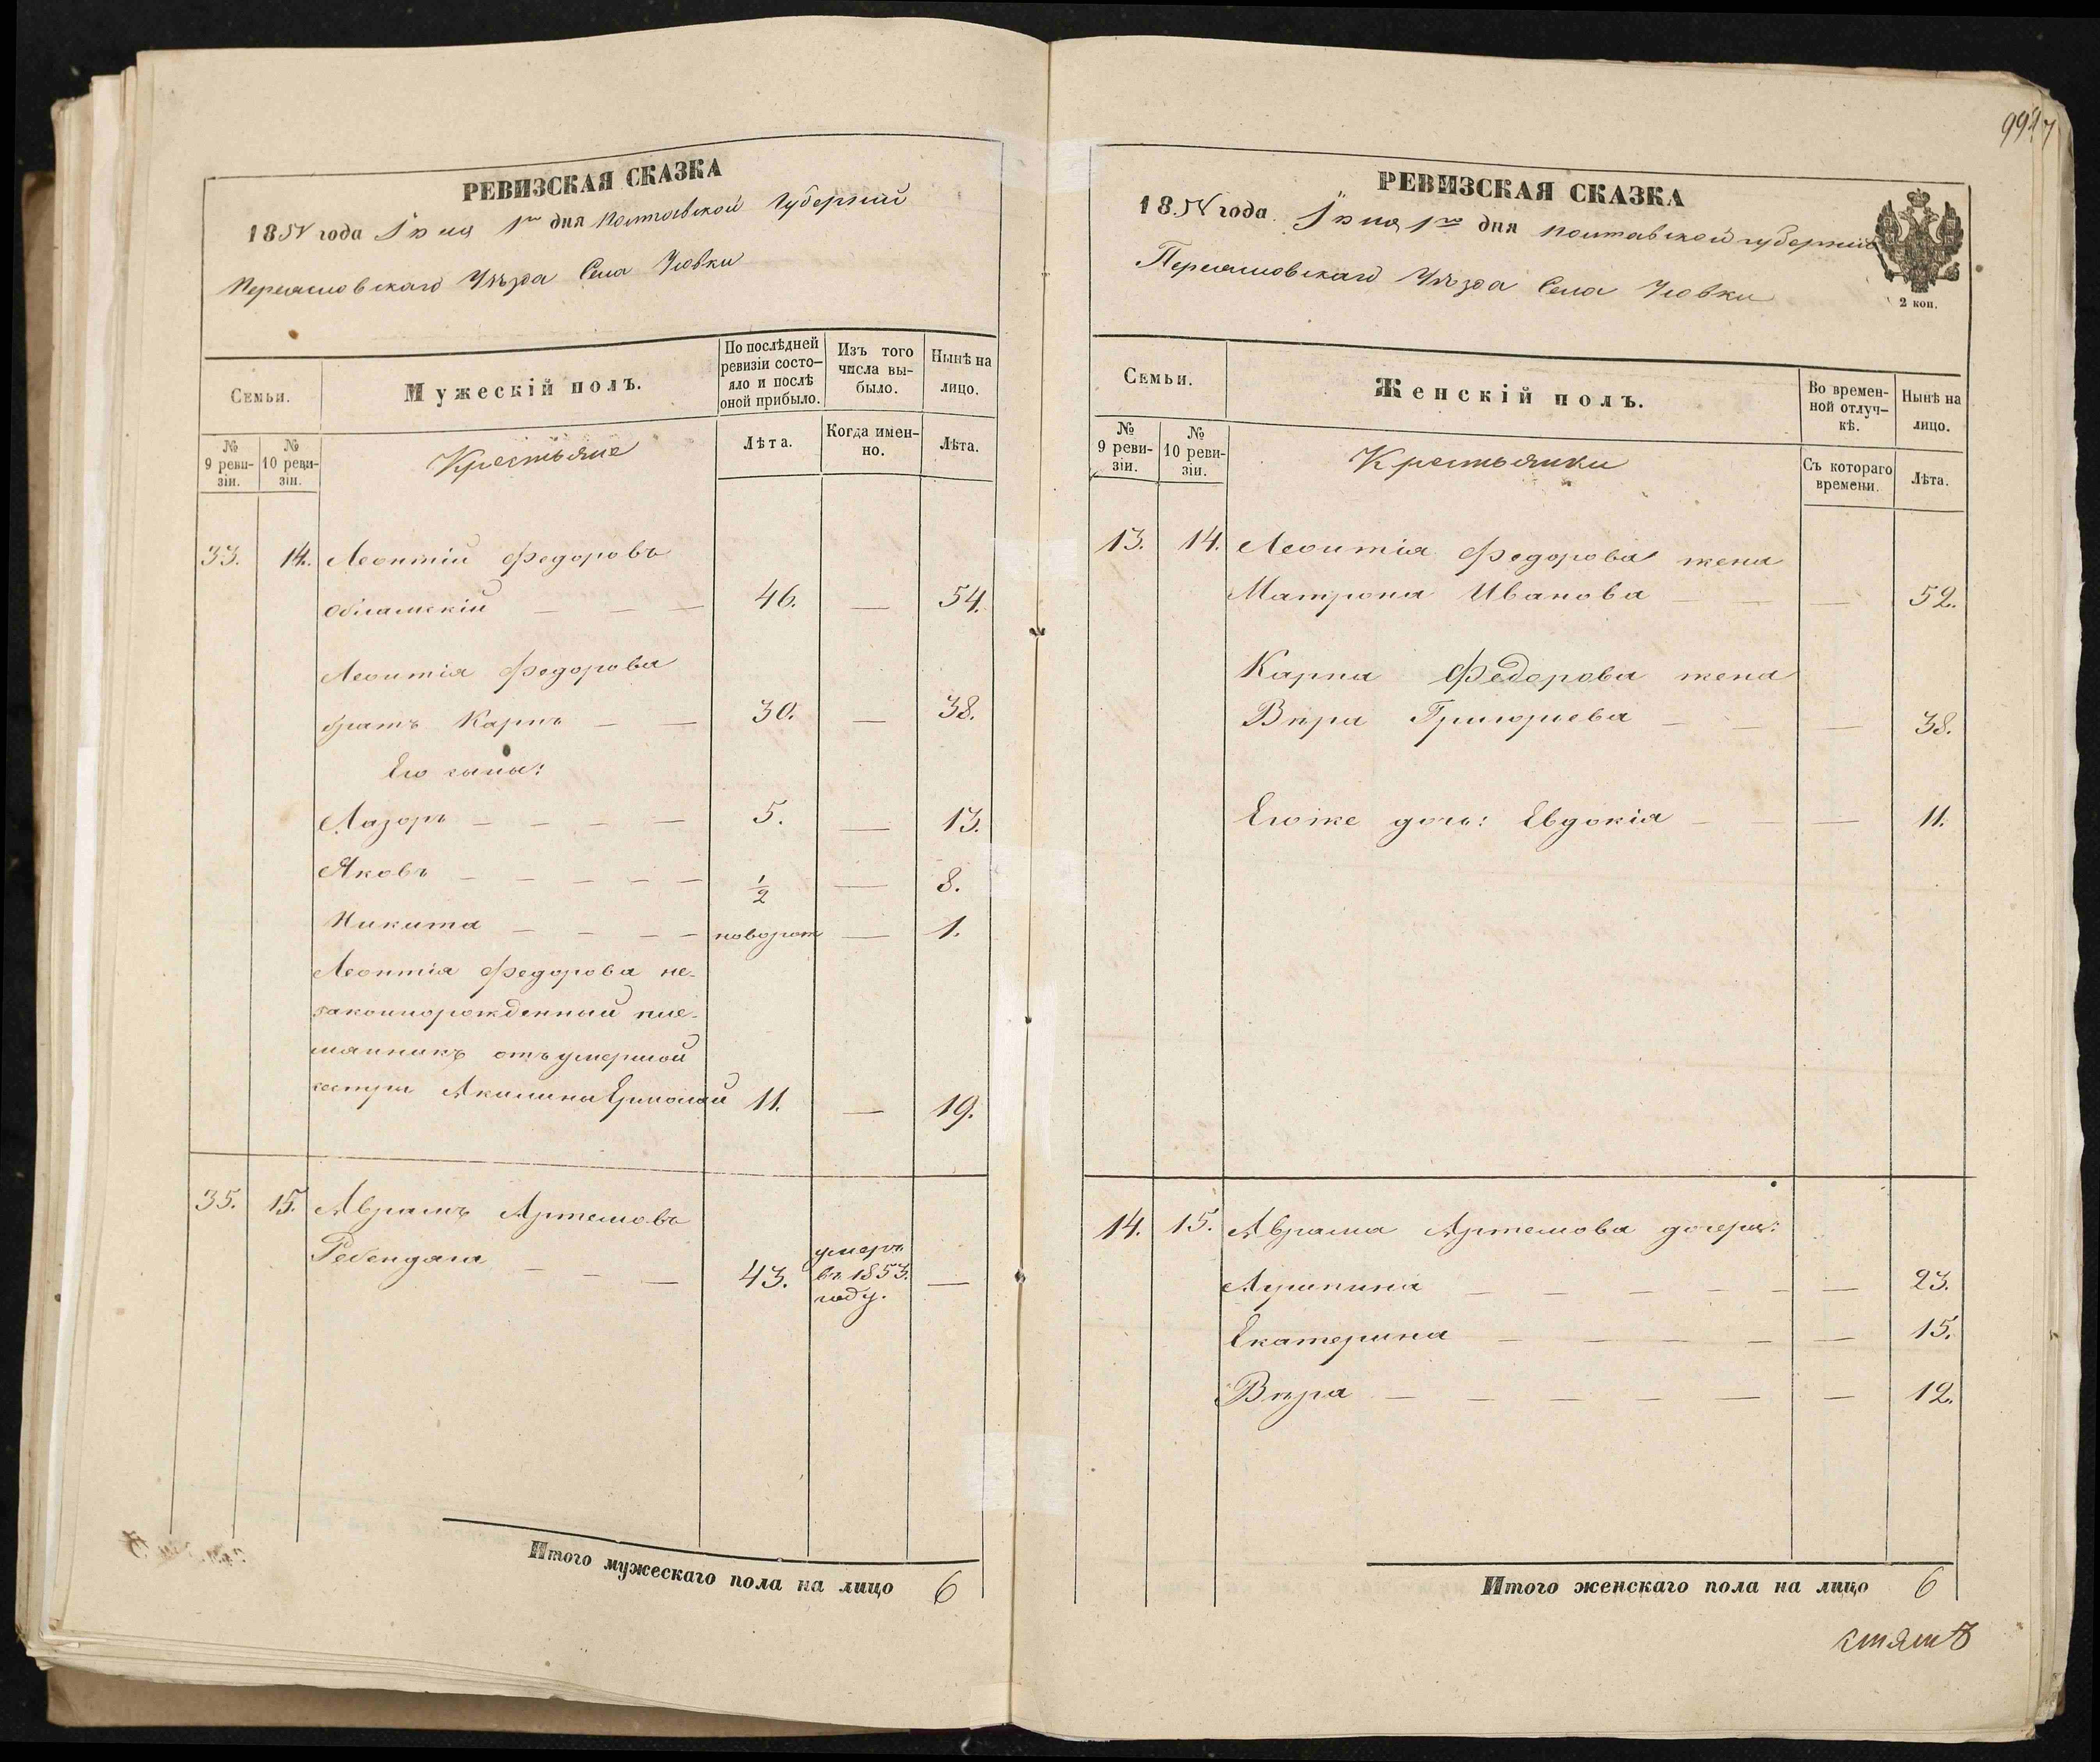 РЕВИЗСКАЯ СКАЗКА
185 года Іюня 1го дня Полтавской Губерніи
Переяславскаго Уѣзда Села
Семьи.
Мужескій полъ.
По послѣдней ревизіи состо-
яло и послѣ оной прибыло.
Изъ того числа вы-
было.
Нынѣ на лицо.
№ 9 реви-
зіи.
№ 10 реви-
зіи.
Крестьяне
Лѣта.
Когда имен-
но.
Лѣта.
33. 14. Леонтій Федоровъ
— — — 46. — 54.
Леонтія Федорова
братъ Карпъ — — 30. — 38.
Его сыны:
Лазорь — — — — 5. — 13.
Яковъ — — — — — 1/2 — 8.
Никита — — — — новорож — 1.
Леонтія Федорова не-
законнорожденный пле-
мянникъ отъ умершой
сестры Акилины Ермолай 11. — 19.
35. 15. Аврамъ Артемовъ
Ребендага — — — 43. умеръ въ 1853. году. —
Итого мужескаго пола на лицо 6
9947
РЕВИЗСКАЯ СКАЗКА
185 года Іюня 1го дня Полтавской губерніи
Переяславскаго Уѣзда Села
2 коп.
Семьи.
Женскій полъ.
Во времен-
ной отлуч-
кѣ.
Нынѣ на лицо.
№ 9 реви-
зіи.
№ 10 реви-
зіи.
Крестьянки
Съ котораго времени.
Лѣта.
13. 14. Леонтія Федорова жена
Матрона Иванова — — — 52.
Карпа Федорова жена
Вѣра Григорьева — — — 38.
Его же дочь: Евдокія — — — 11.
14. 15. Аврама Артемова дочери:
— — — — — — 23.
Екатерина — — — — — 15.
Вѣра — — — — — — 12.
Итого женскаго пола на лицо 6